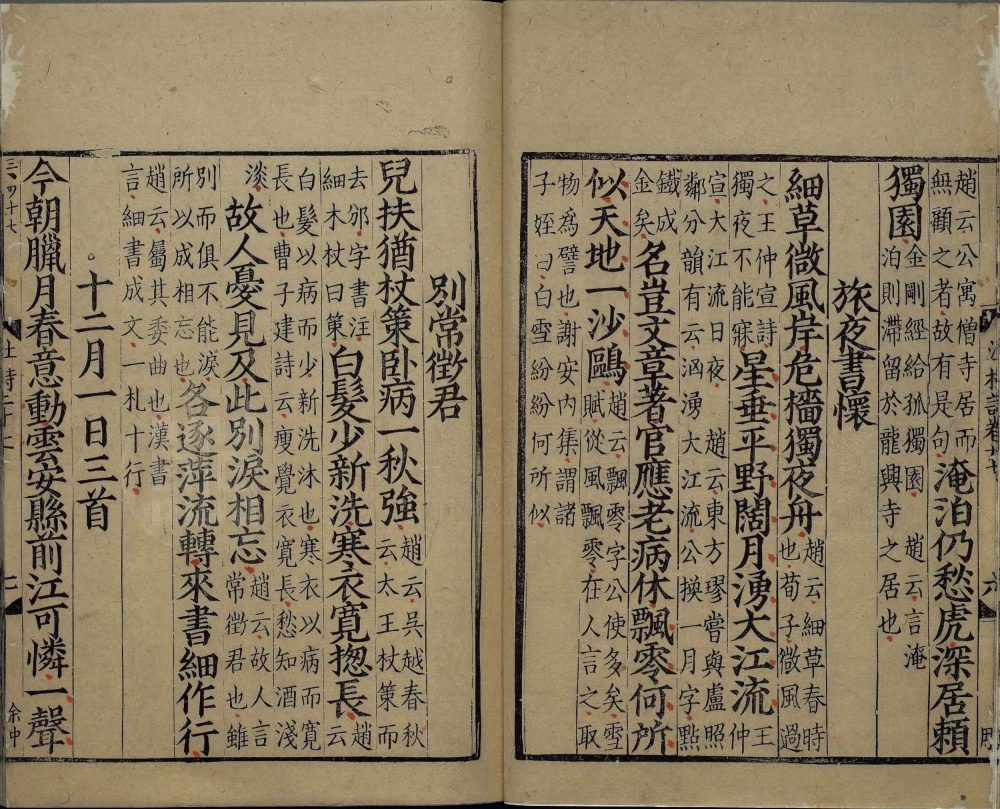 趙云公寓僧寺居而
無顧之者故有是句淹泊仍愁虎深居賴
獨園金剛經給孤獨園趙云言淹
泊則滯留於龍興寺之居也
旅夜書懷
細草微風岸危檣獨夜舟趙云細草春時
也荀子微風過
之王仲宣詩
獨夜不能寐星垂平野闊月湧大江流王
仲
宣大江流日夜趙云東方璆嘗與盧照
鄰分韻有云洶湧大江流公換一月字點
鐵成
金矣名豈文章著官應老病休飄零何所
似天地一沙鷗趙云飄零字公使多矣雪
賦從風飄零在人言之取
物為譬也謝安內集謂諸
子姪曰白雪紛紛何所似
別常徵君
兒扶猶杖策臥病一秋強趙云吳越春秋
云太王杖策而
去邠字書注
細木杖曰策白髮少新洗寒衣寬揔長趙
云
白髮以病而少新洗沐也寒衣以病而寬
長也曹子建詩云瘦覺衣寬長愁知酒淺
淡故人憂見及此別淚相忘趙云故人言
常徵君也雖
別而俱不能淚
所以成相忘也各逐萍流轉來書細作行
趙云屬其委曲也漢書
言細書成文一札十行
十二月一日三首
今朝臘月春意動雲安縣前江可憐一聲
三六四十七